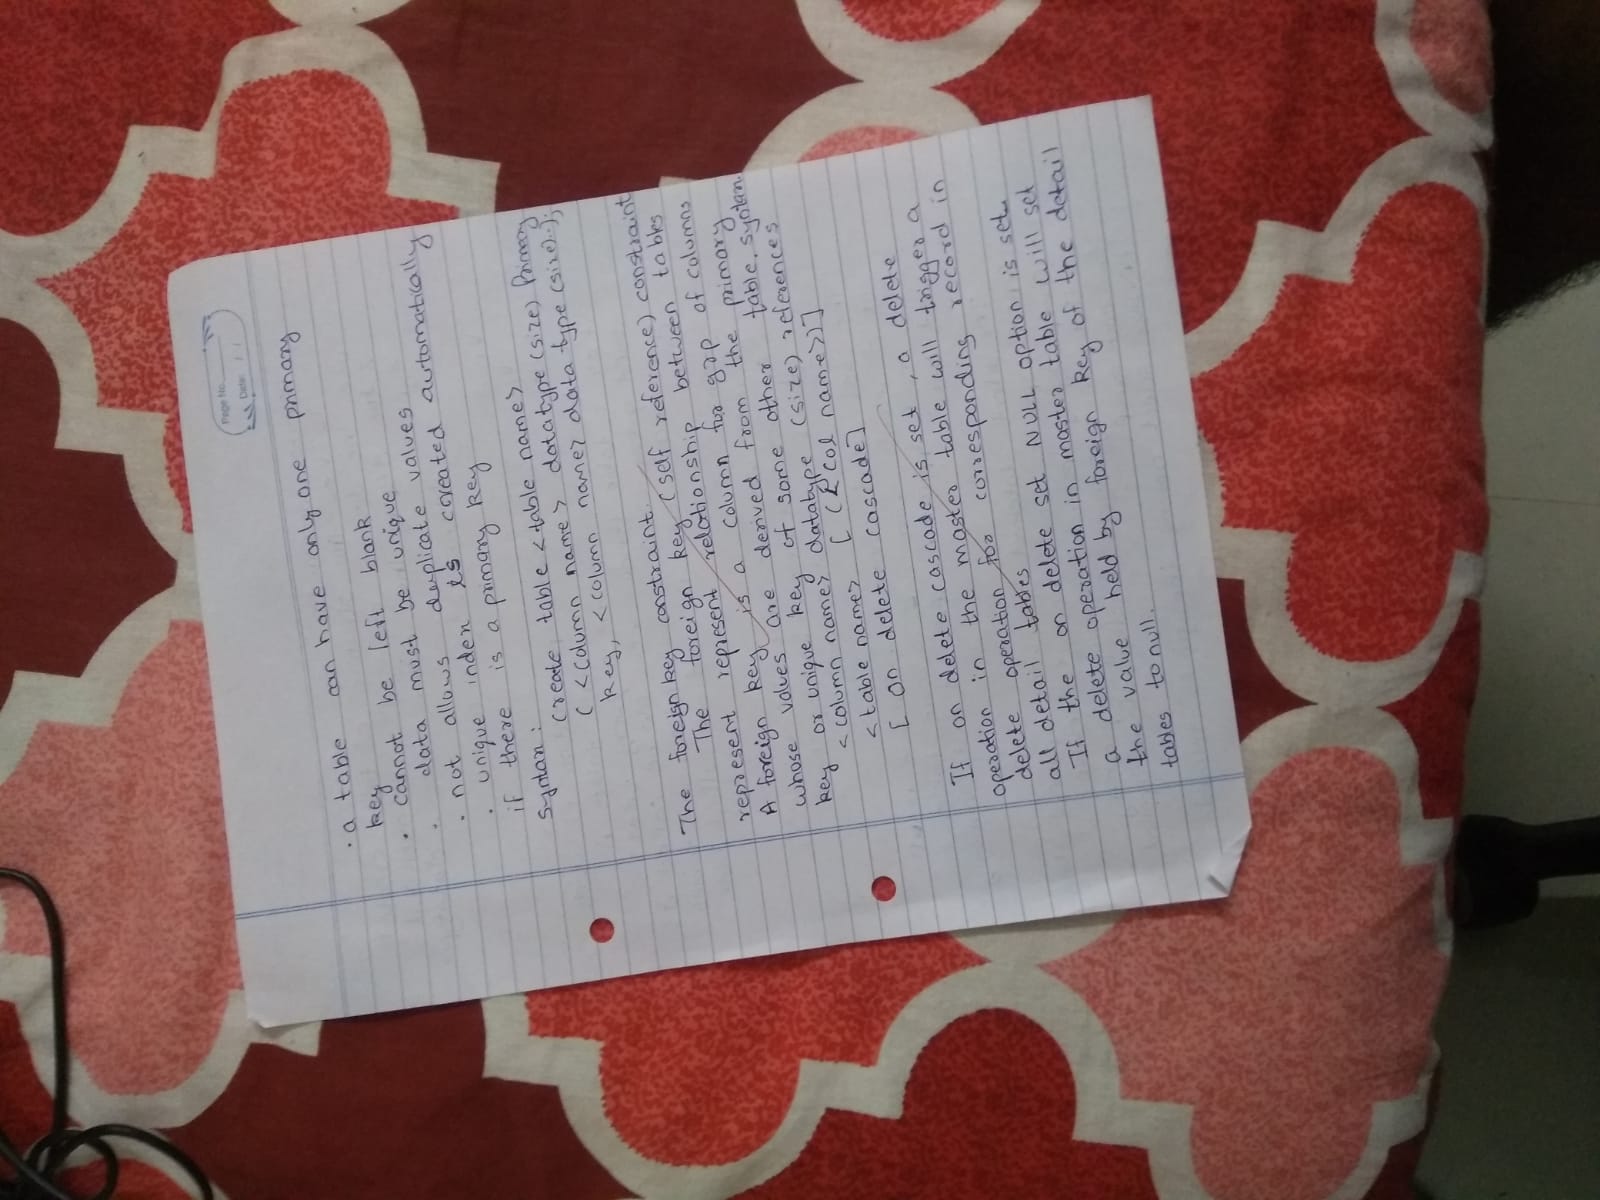 Page No.
Date
· a table can have only one primary
key
· cannot be left blank
· data must be unique
· not allows duplicate values
· unique index is created automatically
if there is a primary key
Syntax:
Create table <table name>
( <column name> datatype (size) Primary
key, <column name> data type (size)..);
The foreign key constraint.
The foreign key (self reference) constraint
represent relationship between tables
A foreign key is a column for grp of columns
whose values are derived from the primary
key or unique key of some other table. syntax.
<column name> datatype (size) references
<table name> [ ( Col name>)]
[ on delete cascade]
If on delete cascade is set, a delete
operation in the master table will trigger a
delete operation for corresponding record in
all detail tables
If the on delete set NULL option is set
a delete operation in master table will set
the value held by foreign key of the detail
tables to null.